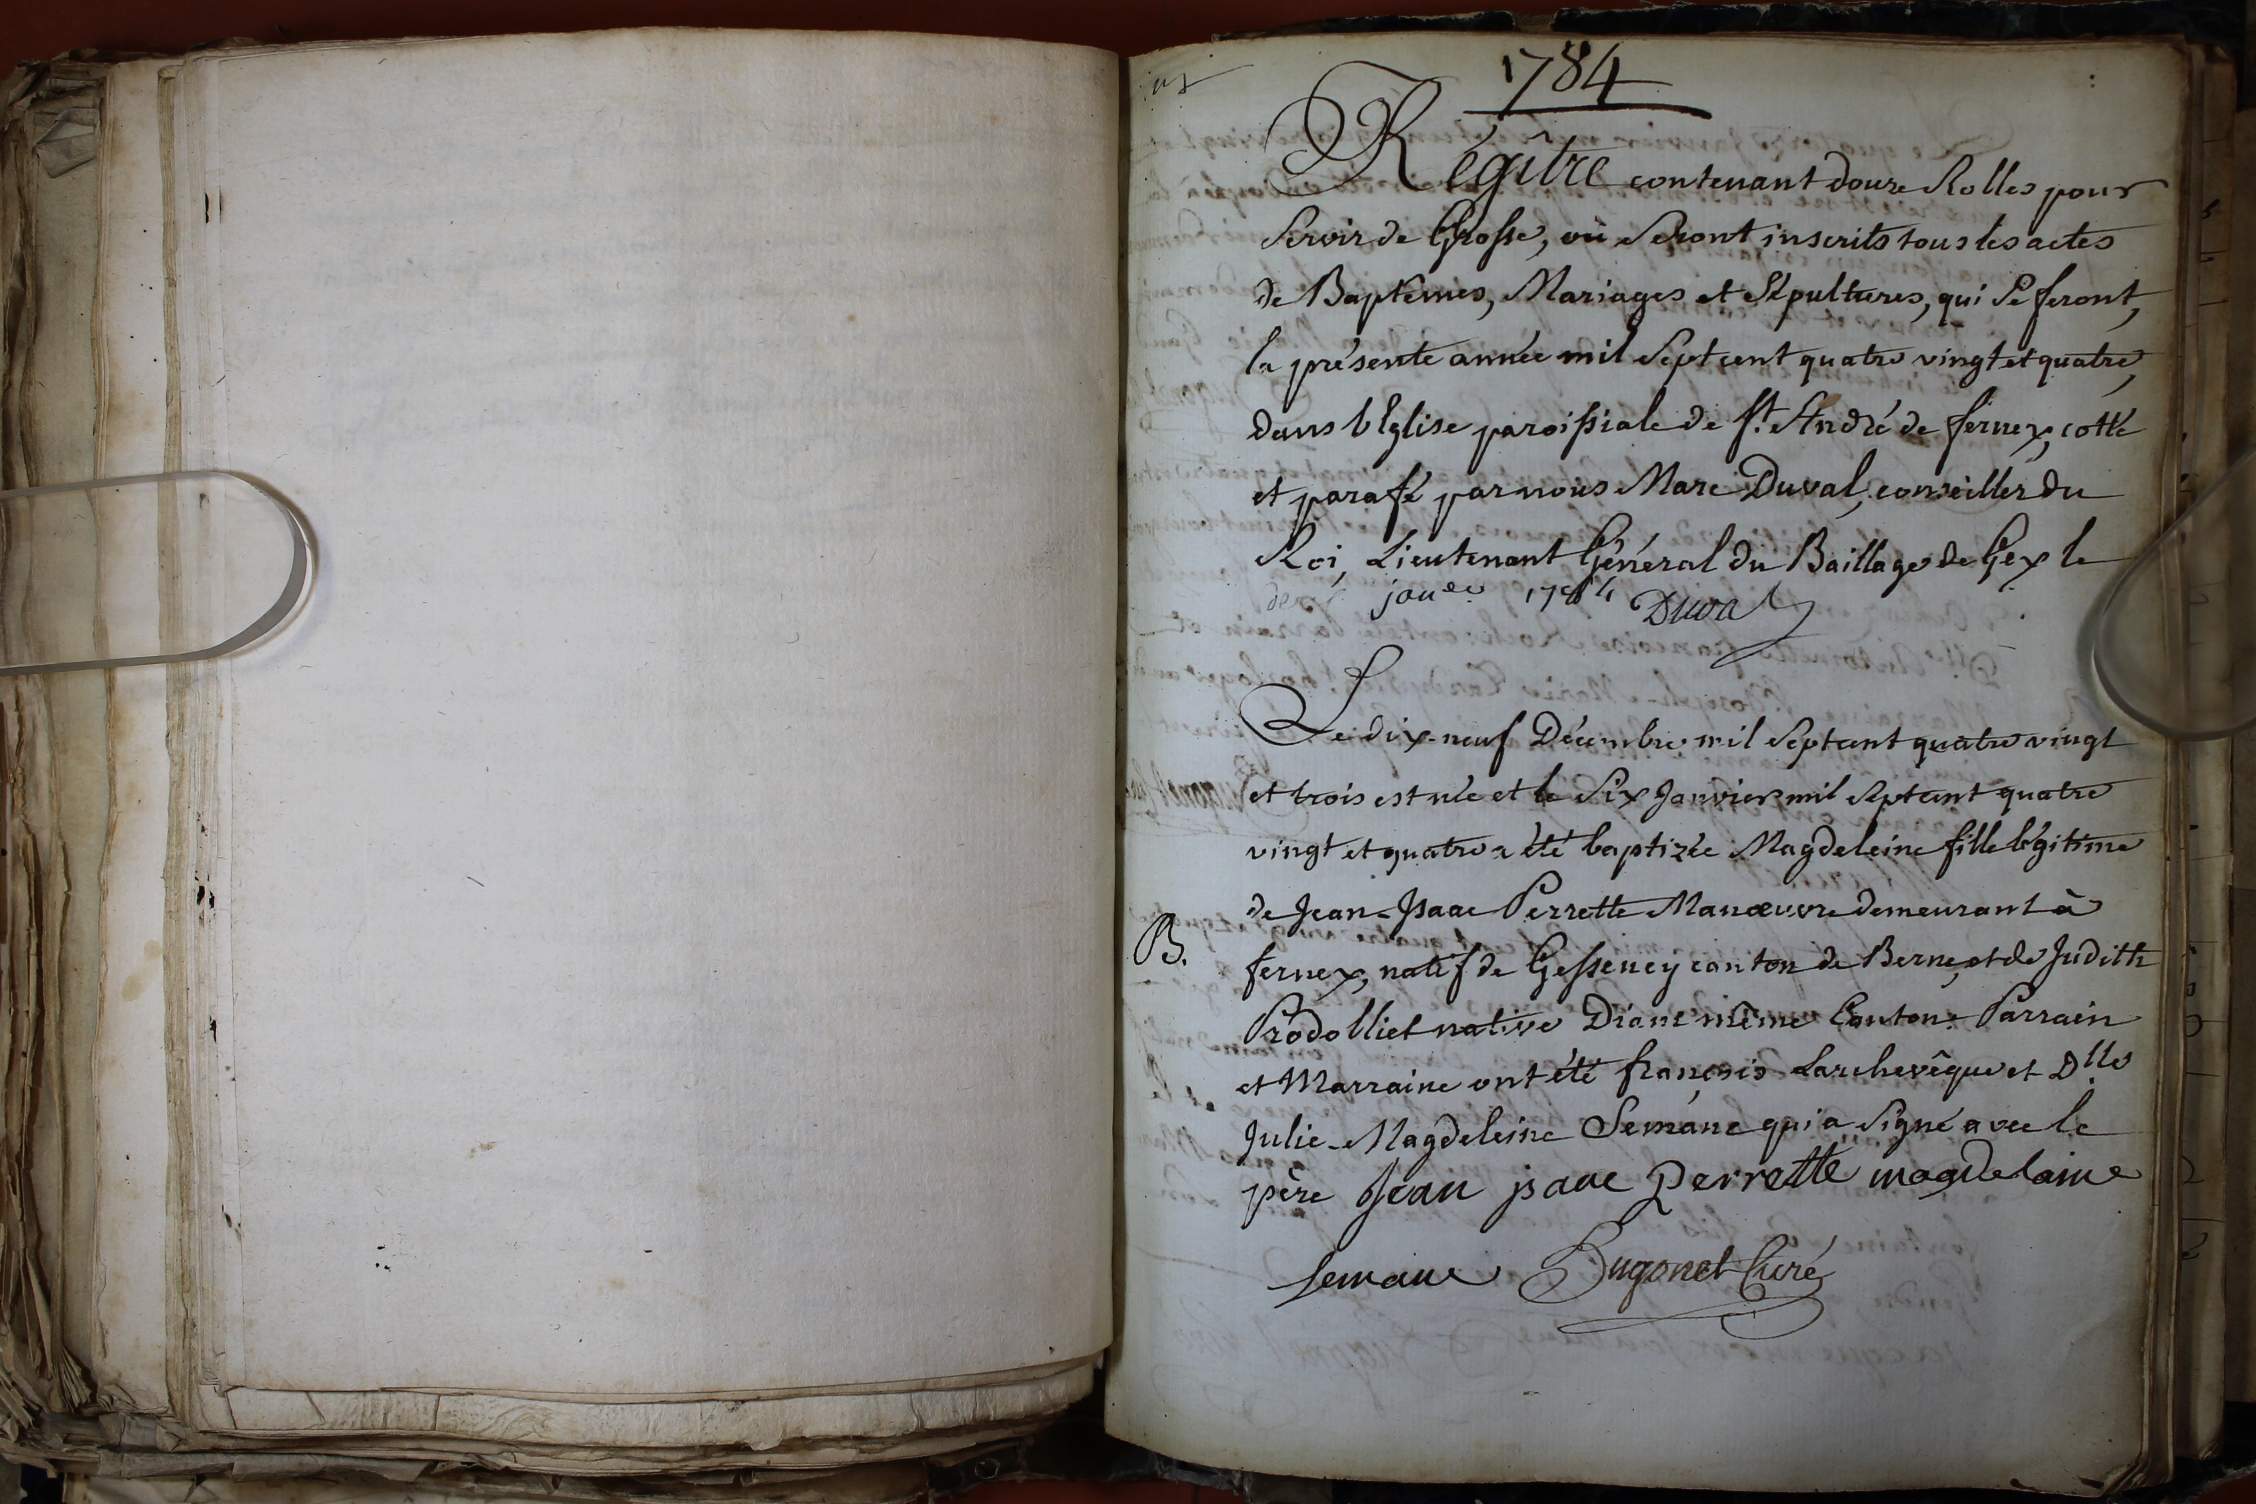 1784
Régître contenant douze Rolles pour
Servir de Grosse, où Seront inscrits tous les actes
de Baptêmes, Mariages et Sépultures, qui Se feront,
la présente année mil Sept cent quatre vingt et quatre,
dans l'Eglise paroissiale de St. André de fernex, cotté
et parafé par nous Marc Duval, conseiller du
Roi, Lieutenant Général du Baillage de Gex le
1784 Duval
Le dix-neuf Décembre mil Sept cent quatre vingt
et trois est née et le Six Janvier mil Sept cent quatre
vingt et quatre a été baptizée Magdeleine fille légitime
de Jean-Isaac Perrette Manœuvre demeurant à
B.
fernex, natif de Gesseney canton de Berne, et de Judith
Prodolliet native même Canton. Parrain
et Marraine ont été françois Larchevêque et Dlle
Julie-Magdeleine Semane qui a Signé avec le
père Jean isaac Perrette magdelaine
Semane Dugonet Curé